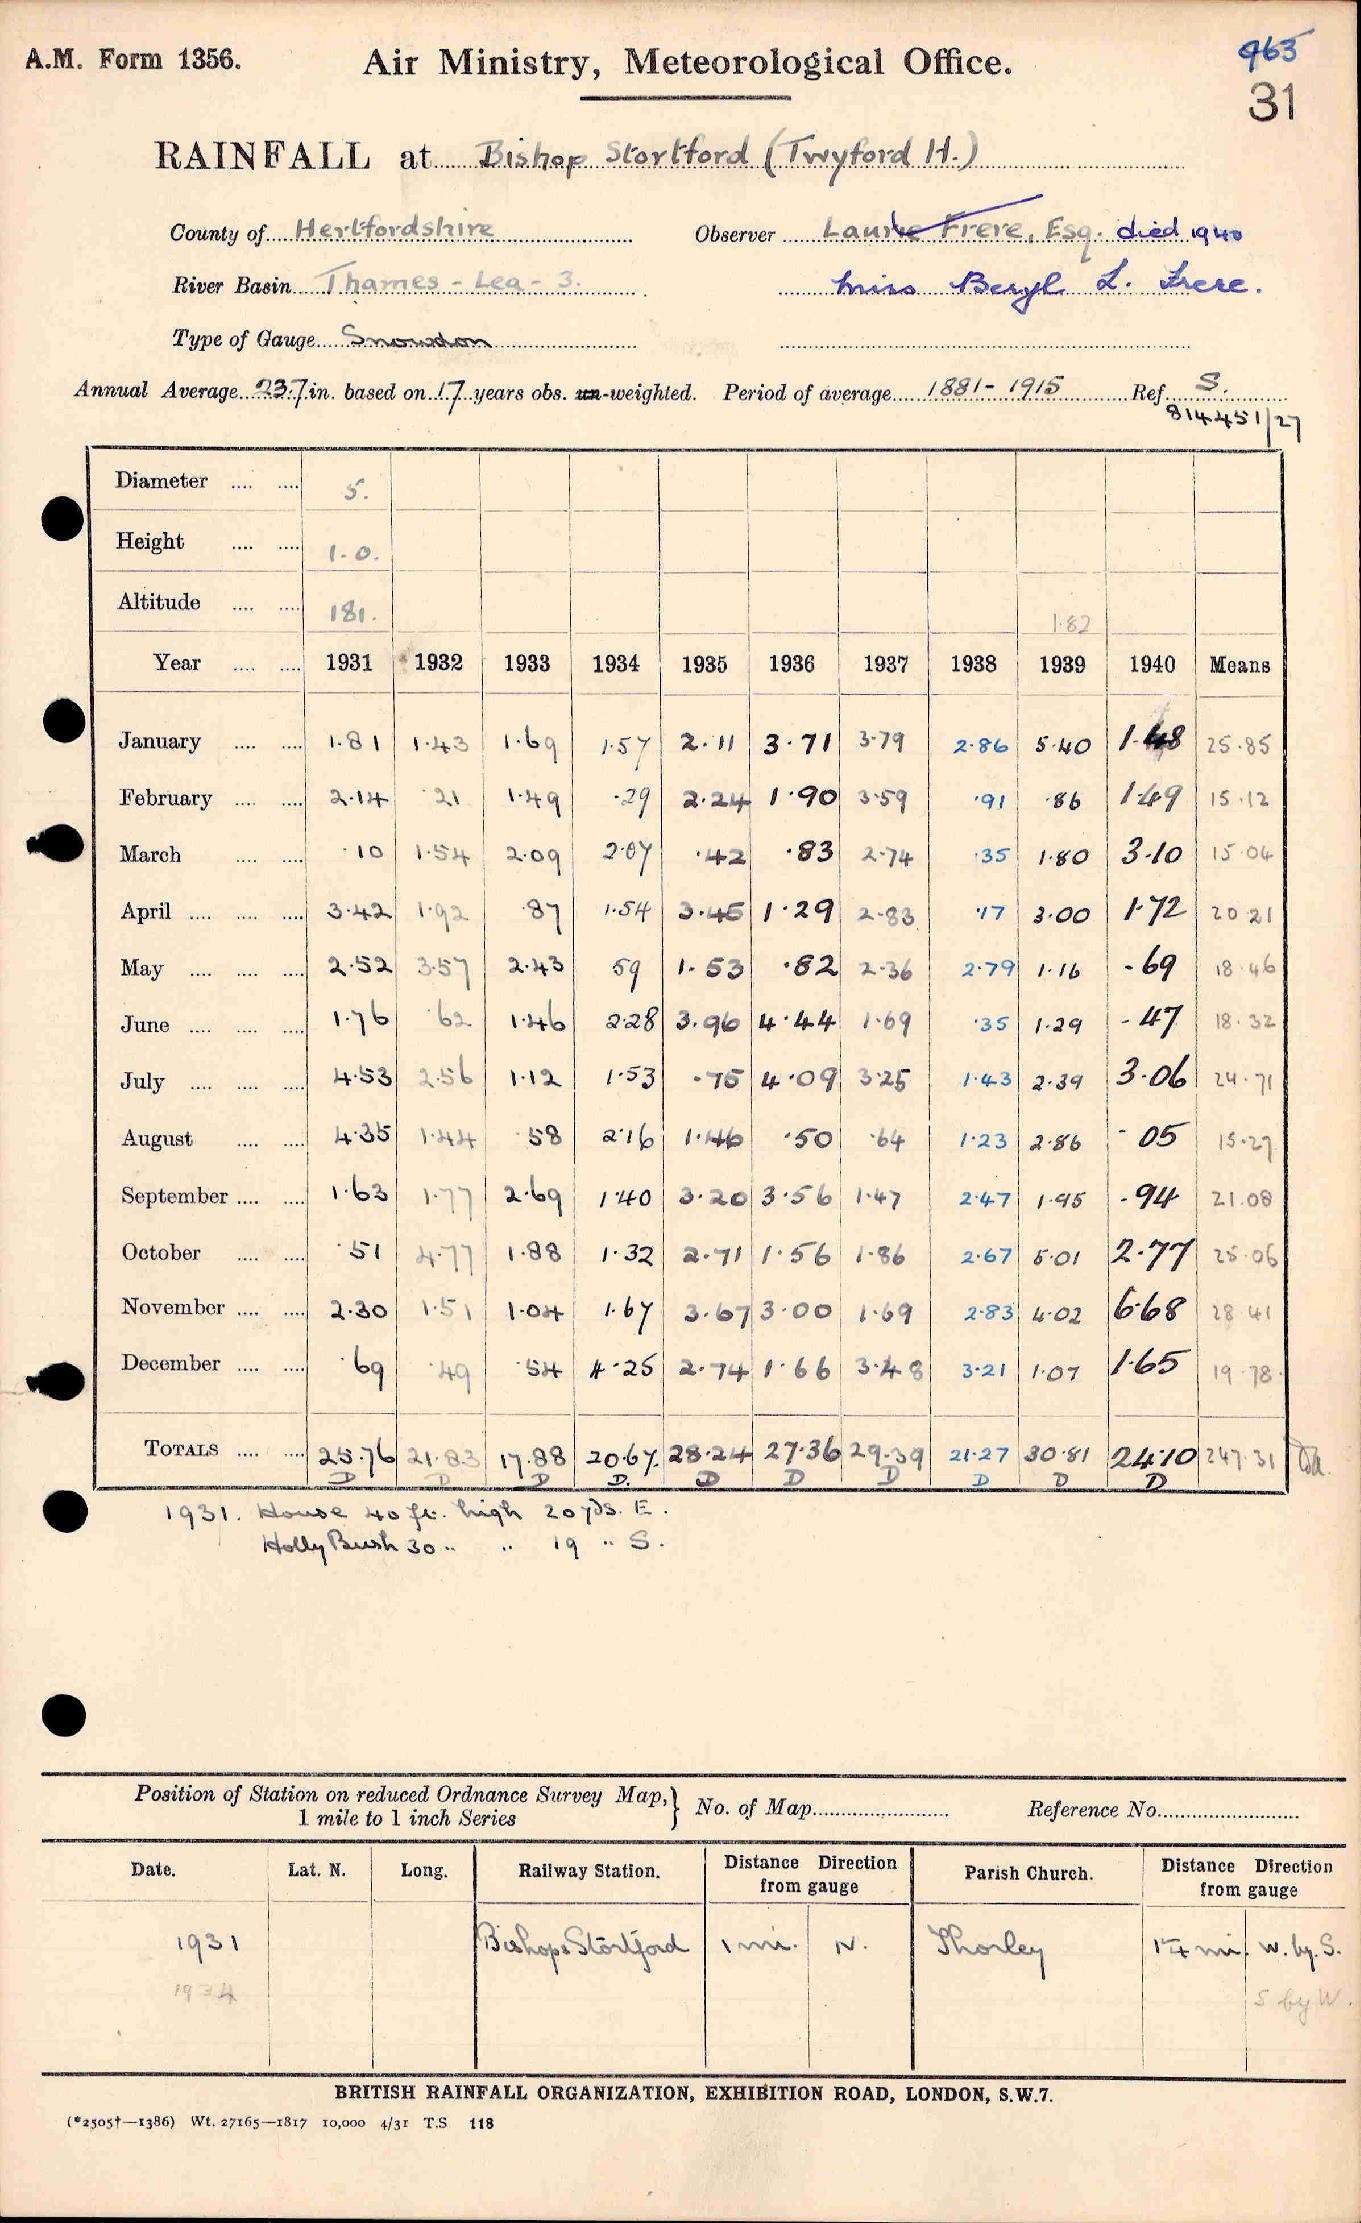 A.M. Form 1356.
Air Ministry, Meteorological Office.
965
31
RAINFALL at Bishop Stortford (Twyford H.)
County of Hertfordshire
Observer Laurie Frere, Esq. died 1940
River Basin Thames - Lea - 3.
Miss Beryl L. Frere.
Type of Gauge Snowdon
Annual Average 23.7 in. based on 17 years obs. un-weighted. Period of average 1881-1915 Ref. S.
814451/27
Diameter .... .... 5.
Height .... .... 1-0.
Altitude .... .... 181. 182
Year .... .... 1931 1932 1933 1934 1935 1936 1937 1938 1939 1940 Means
January .... .... 1.81 1.43 1.69 1.57 2.11 3.71 3.79 2.86 5.40 1.48 25.85
February .... .... 2.14 .21 1.49 .29 2.24 1.90 3.59 .91 .86 1.49 15.12
March .... .... .10 1.54 2.09 2.07 .42 .83 2.74 .35 1.80 3.10 15.04
April .... .... .... 3.42 1.92 .87 1.54 3.45 1.29 2.83 .17 3.00 1.72 20.21
May .... .... .... 2.52 3.57 2.43 .59 1.53 .82 2.36 2.79 1.16 .69 18.46
June .... .... .... 1.76 .62 1.46 2.28 3.96 4.44 1.69 .35 1.29 .47 18.32
July .... .... .... 4.53 2.56 1.12 1.53 .75 4.09 3.25 1.43 2.39 3.06 24.71
August .... .... 4.35 1.44 .58 2.16 1.46 .50 .64 1.23 2.86 .05 15.27
September .... .... 1.63 1.77 2.69 1.40 3.20 3.56 1.47 2.47 1.95 .94 21.08
October .... .... .51 4.77 1.88 1.32 2.71 1.56 1.86 2.67 5.01 2.77 25.06
November .... .... 2.30 1.51 1.04 1.67 3.67 3.00 1.69 2.83 4.02 6.68 28.41
December .... .... .69 .49 .54 4.25 2.74 1.66 3.48 3.21 1.07 1.65 19.78
TOTALS .... .... 25.76 21.83 17.88 20.67 28.24 27.36 29.39 21.27 30.81 24.10 247.31
D D D D. D D D D D D
1931. House 40 ft. high 20 yds. E.
Holly Bush 30 " " 19 " S.
Position of Station on reduced Ordnance Survey Map, 1 mile to 1 inch Series } No. of Map Reference No.
Date. Lat. N. Long. Railway Station. Distance Direction from gauge Parish Church. Distance Direction from gauge
1931 Bishops Stortford 1 mi. N. Thorley 1¼ mi. W. by. S.
1934 S by W.
BRITISH RAINFALL ORGANIZATION, EXHIBITION ROAD, LONDON, S.W.7.
(*2505†—1386) Wt. 27165—1817 10,000 4/31 T.S 118